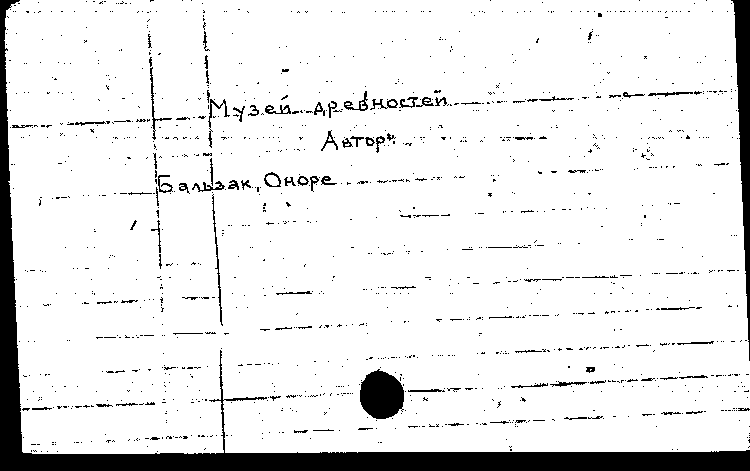 Музей древностей
Автор:
Бальзак, Оноре